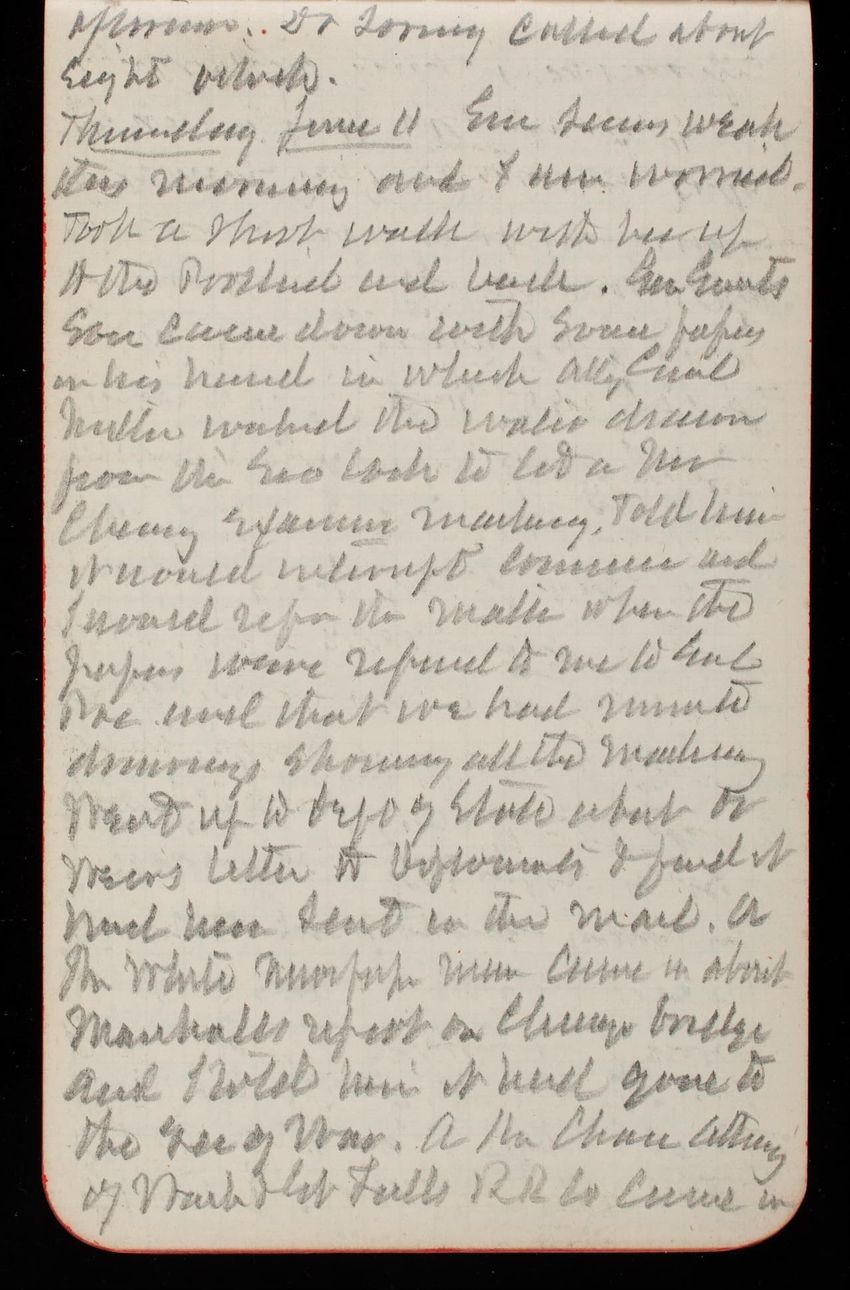 afternoon. Dr Loring called about
eight oclock.
Thursday June 11 Em seems weak
this morning and I am worried.
Took a short walk with her up
to the and back. Gen Grants
Son came down with some papers
in his hand in which Atty Genl
Miller wanted the water drawn
from the Soo lock to let a Mr
Cheney Examine machinery, Told him
it would interrupt commerce and
I would refer the matter when the
papers were referred to me to Genl
Poe and that we had minute
drawings showing all the machinery
Went up to Dept of State about Dr
Weirs letter to & find it
had been sent in the mail. A
Mr White newspaper man came in about
Marshalls report on Chicago bridge
and I told him it had gone to
the Sec of War. A Mr Chase Attorney
of Falls RR Co came in